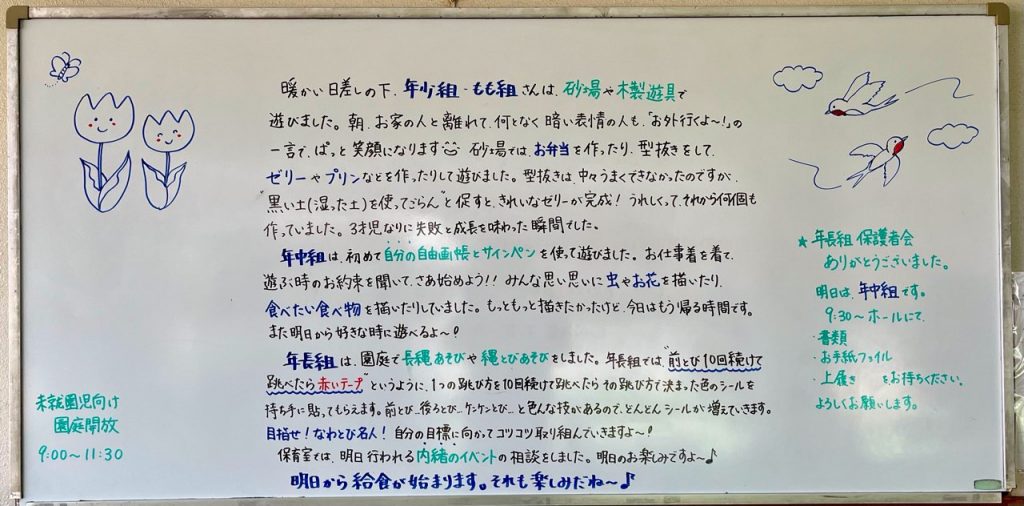 暖かい日差しの下、年少組・もも組さんは、砂場や木製遊具で
遊びました。朝、お家の人と離れて、何となく暗い表情の人も、「お外行くよ〜!」の
一言で、ぱっと笑顔になります 砂場では、お弁当を作ったり、型抜きをして、
ゼリーやプリンなどを作ったりして遊びました。型抜きは、中々うまくできなかったのですが、
"黒い土(湿った土)を使ってごらん"と促すと、きれいなゼリーが完成!うれしくって、それから何個も
作っていました。3才児なりに失敗と成長を味わった瞬間でした。
年中組は、初めて自分の自由画帳とサインペンを使って遊びました。お仕事着を着て、
遊ぶ時のお約束を聞いて、さあ始めよう!!みんな思い思いに虫やお花を描いたり、
食べたい食べ物を描いたりしていました。もっともっと描きたかったけど、今日はもう帰る時間です。
また明日から好きな時に遊べるよ〜!
年長組は、園庭で長縄あそびや縄とびあそびをしました。年長組では、"前とび10回続けて
跳べたら赤いテープ"というように、1つの跳び方を10回続けて跳べたらその跳び方で決まった色のシールを
持ち手に貼ってもらえます。前とび…後ろとび…ケンケンとび…と色んな技があるので、どんどんシールが増えていきます。
目指せ!なわとび名人!自分の目標に向かってコツコツ取り組んでいきますよ〜!
保育室では、明日行われる内緒のイベントの相談をしました。明日のお楽しみですよ〜♪
明日から給食が始まります。それも楽しみだね〜♪
未就園児向け
園庭開放
9:00〜11:30
★年長組 保護者会
ありがとうございました。
明日は、年中組です。
9:30〜ホールにて、
・書類
・お手紙ファイル
・上履き をお持ちください。
よろしくお願いします。